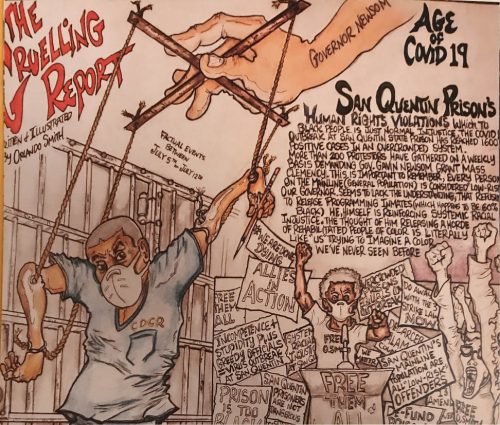 THE
CRUELLING
REPORT
WRITTEN & ILLUSTRATED
By ORLANDO SMITH
FACTUAL EVENTS
BETWEEN
JULY 5TH to JULY 12TH
GOVERNOR NEWSOM
AGE
OF
COVID 19
SAN QUENTIN PRISON'S
HUMAN RIGHTS VIOLATIONS WHICH TO
BLACK PEOPLE IS JUST NORMAL INJUSTICE. THE COVID
OUTBREAK AT SAN QUENTIN STATE PRISON HAS REACHED 1600
POSITIVE CASES IN AN OVERCROWDED
MORE THAN 200 PROTESTORS HAVE GATHERED ON A WEEKLY
BASIS DEMANDING GOV. GAVIN NEWSOM GRANT MASS
CLEMENCY. THIS IS IMPORTANT TO REMEMBER, EVERY PERSON
ON THE MAINLINE (GENERAL POPULATION) IS CONSIDERED LOW-RISK
OUR GOVERNOR SEEMS TO LACK THE UNDERSTANDING, THAT REFUSING
TO RELEASE PROGRAMMING INMATES (WHICH HAPPENS TO BE 60%
BLACK) HE HIMSELF IS REINFORCING SYSTEMIC RACIAL
INJUSTICE. THE THOUGHT OF HIM RELEASING A HORDE
OF REHABILITATED PEOPLE OF COLOR IS LITERALLY
LIKE US TRYING TO IMAGINE A COLOR
WE'VE NEVER SEEN BEFORE
CDCR
WE ARE DONE
DYING
ALLIES
IN
ACTION
FREE
THEM
ALL
INCOMPETENCE +
STUPIDITY PLUS
SPEEDY DEFIES
VIRUS OUTBREAK
AT SAN QUENTIN
SAN QUENTIN
PRISONERS
ARE NOT
PRISON
IS TOO
BLACK
FREE
O.SMITH
FREE
THEM
ALL
OVERCROWDED
PRISONS
DO AWAY
WITH THE 3
STRIKE LAW
SAN QUENTIN'S
MAINLINE
POPULATION ARE
ALL LOW-RISK
OFFENDERS
DE-FUND
AMEND
FREE